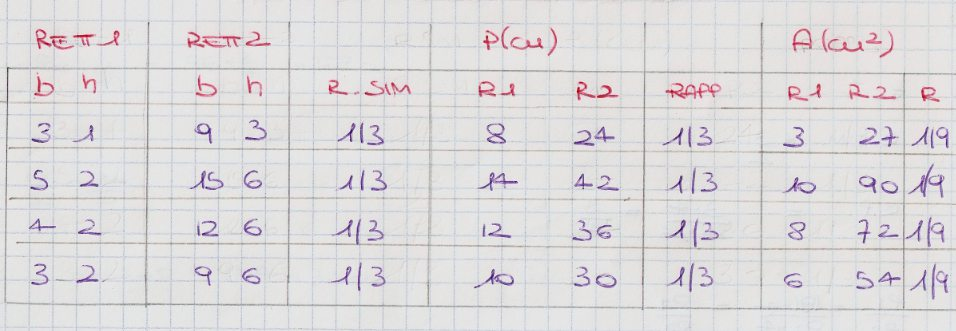 RETT 1 RETT 2 P(cm) A(cm²)
b h b h R. SIM R1 R2 RAPP R1 R2 R
3 1 9 3 1/3 8 24 1/3 3 27 1/9
5 2 15 6 1/3 14 42 1/3 10 90 1/9
4 2 12 6 1/3 12 36 1/3 8 72 1/9
3 2 9 6 1/3 10 30 1/3 6 54 1/9